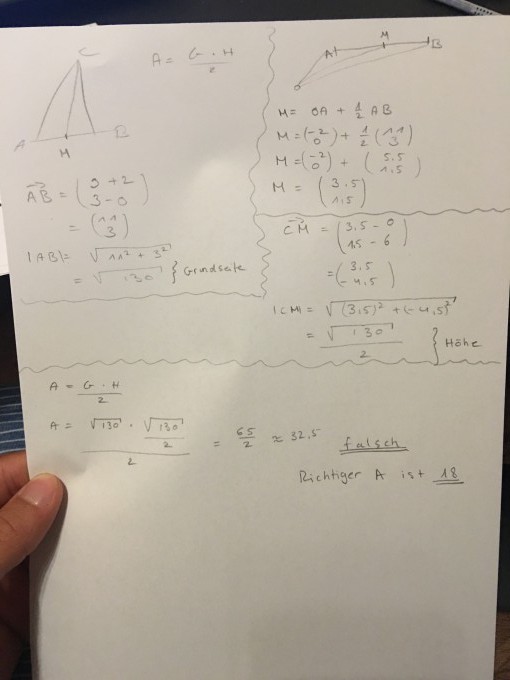 C
A = G · H / 2
A M B
→AB = (9 + 2 / 3 - 0)
= (11 / 3)
|AB| = √11² + 3²
= √130 } Grundseite
A M B
0
M = 0A + 1/2 AB
M = (-2 / 0) + 1/2 (11 / 3)
M = (-2 / 0) + (5.5 / 1.5)
M = (3.5 / 1.5)
→CM = (3,5 - 0 / 1.5 - 6)
= (3,5 / - 4,5)
|CM| = √(3,5)² + (-4,5)²
= √130 / 2 } Höhe
A = G · H / 2
A = √130 · √130 / 2 / 2 = 65 / 2 ≈ 32.5 falsch
Richtiger A ist 18